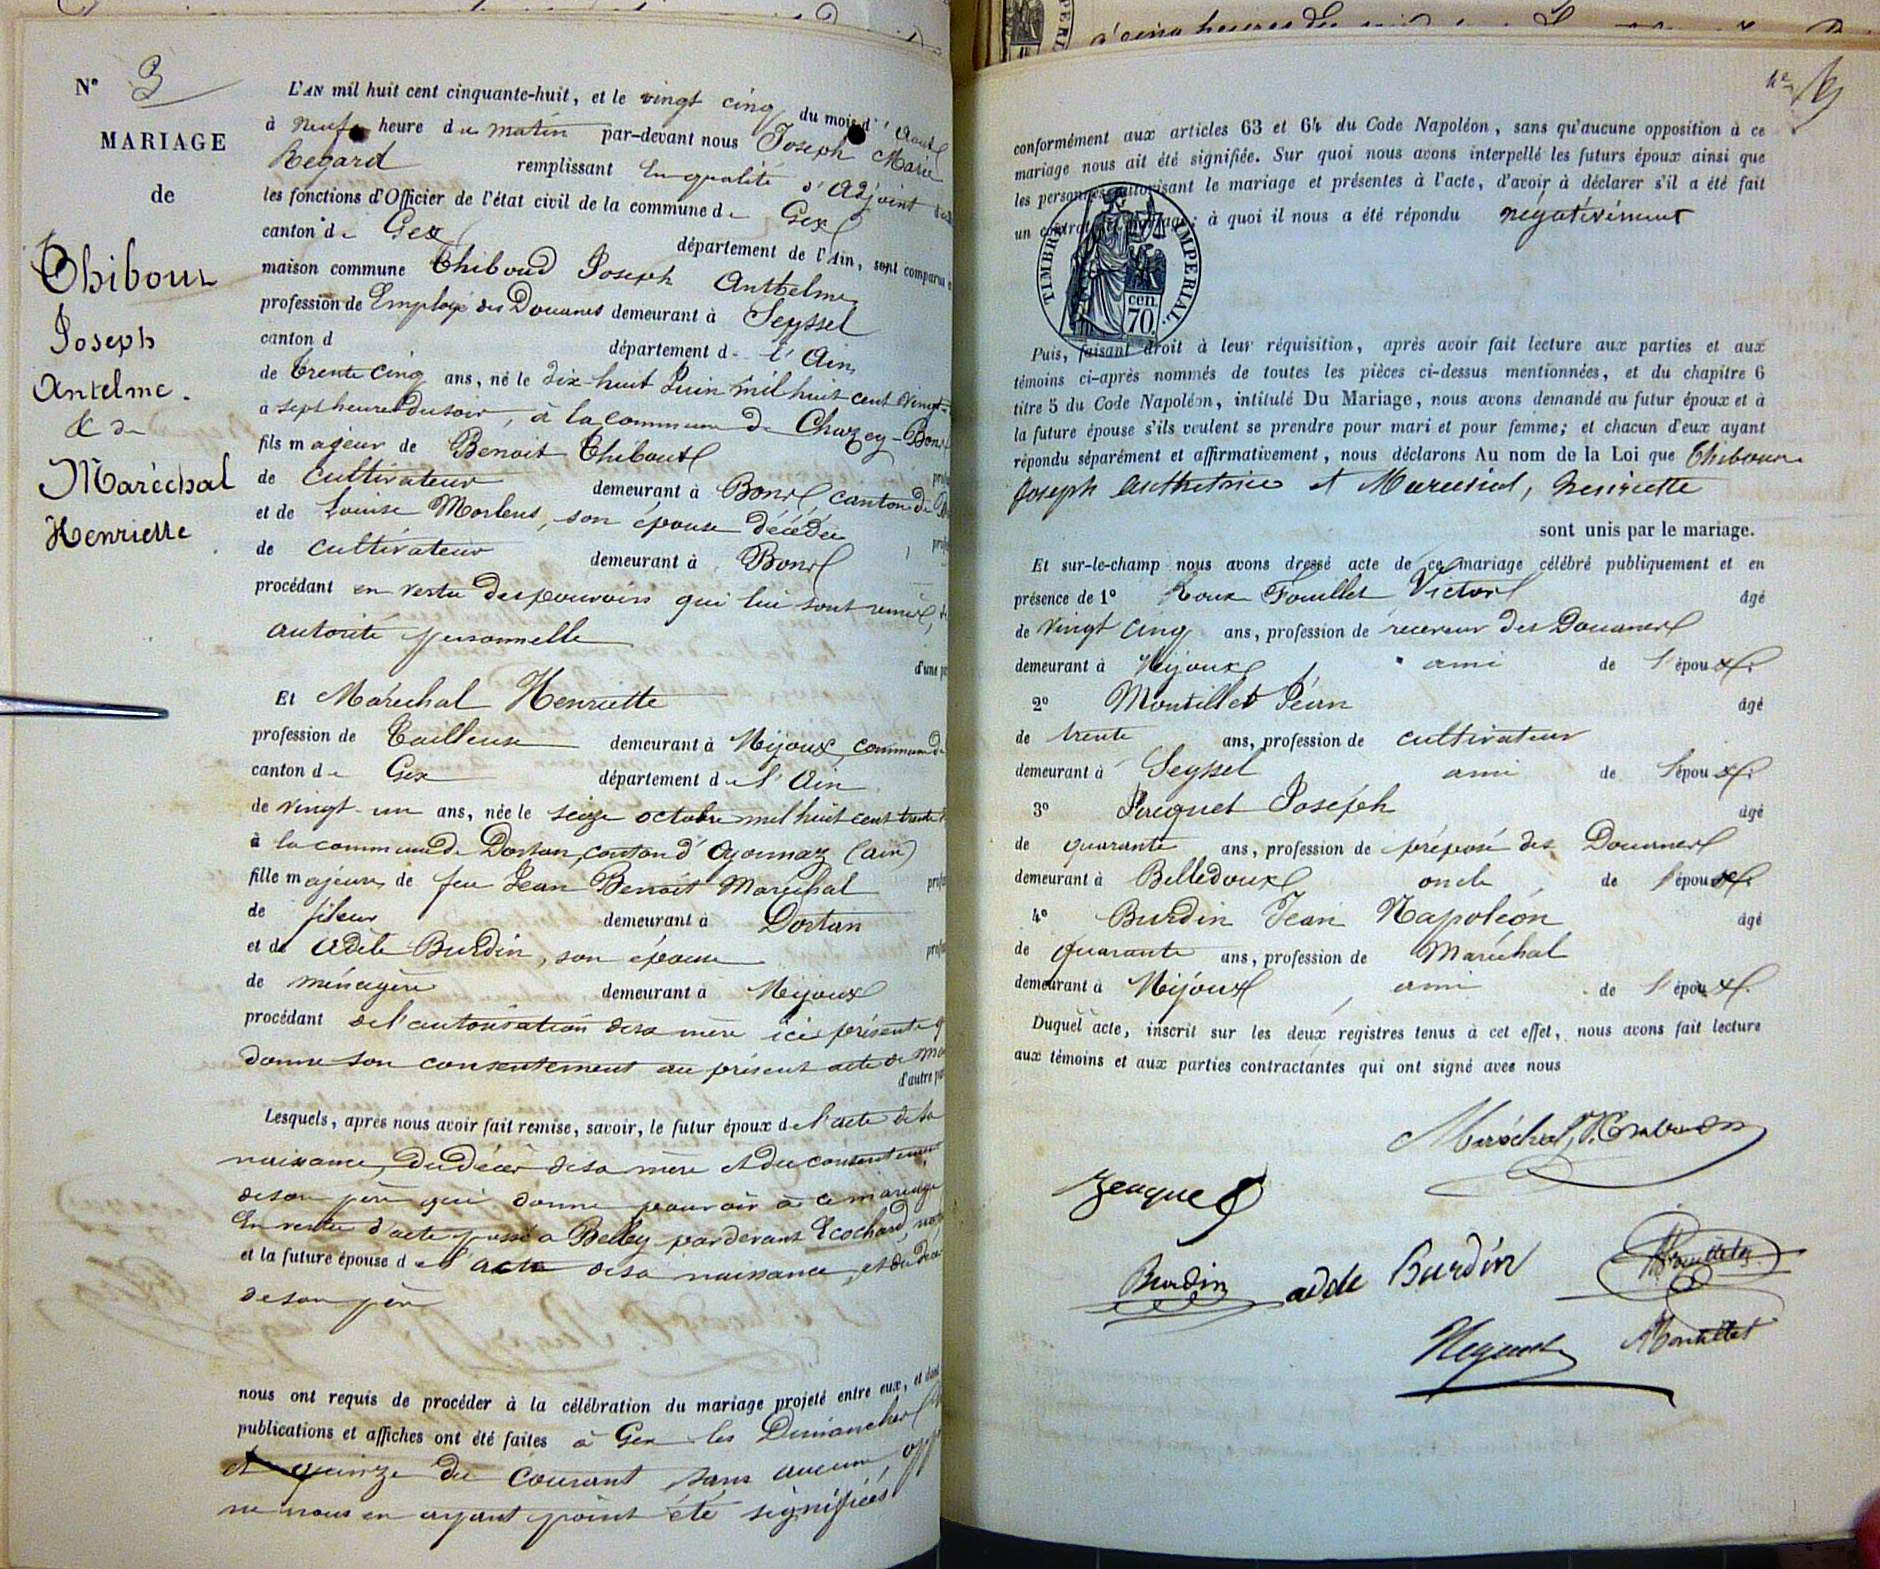 N° 3
MARIAGE
de
Thiboud
Joseph
Antelme.
& de
Maréchal
Henriette
L'AN mil huit cent cinquante-huit, et le vingt cinq du mois d'Aout
à neuf heure du matin par-devant nous Joseph Marie
Regard remplissant En qualité d'Adjoint
les fonctions d'Officier de l'état civil de la commune de Gex
canton de Gex département de l'Ain, sont comparus
maison commune Thiboud Joseph Anthelme
profession de Employé des Douanes demeurant à Seyssel
canton d département de l'Ain
de trente cinq ans, né le dix-huit Juin mil huit cent vingt
à sept heures du soir, à la commune de Chazey-Bons
fils majeur de Benoit Thiboud
de cultivateur demeurant à Bons, canton de
et de Louise Morlens, son épouse décédée
de cultivateur demeurant à Bons
procédant en vertu des pouvoirs qui lui sont remis,
autorité personnelle
d'une
Et Maréchal Henriette
profession de Tailleuse demeurant à Mijoux, commune de
canton de Gex département de l'Ain
de vingt-un ans, née le seize octobre mil huit cent trente
à la commune de Dortan, canton d'Oyonnaz (ain)
fille majeure de feu Jean Benoit Maréchal
de fileur demeurant à Dortan
et de Adèle Burdin, son épouse
de ménagère demeurant à Mijoux
procédant de l'autorisation de sa mère ici présente
donne son consentement au présent acte de
d'autre
Lesquels, après nous avoir fait remise, savoir, le futur époux de l'acte de sa
naissance, du décès de sa mère et du consentement
de son père qui donne pouvoir à ce mariage
En vertu d'acte passé à Belley pardevant Ecochard,
et la future épouse de l'acte de sa naissance, et du
de son père
nous ont requis de procéder à la célébration du mariage projeté entre eux, et dont
publications et affiches ont été faites à Gex les Dimanches
et quinze du courant sans aucune
ne nous en ayant point été signifiées
conformément aux articles 63 et 64 du Code Napoléon, sans qu'aucune opposition à ce
mariage nous ait été signifiée. Sur quoi nous avons interpellé les futurs époux ainsi que
les personnes autorisant le mariage et présentes à l'acte, d'avoir à déclarer s'il a été fait
un contrat de mariage; à quoi il nous a été répondu négativement
TIMBRE IMPERIAL
70 cen.
Puis, faisant droit à leur réquisition, après avoir fait lecture aux parties et aux
témoins ci-après nommés de toutes les pièces ci-dessus mentionnées, et du chapitre 6
titre 5 du Code Napoléon, intitulé Du Mariage, nous avons demandé au futur époux et à
la future épouse s'ils veulent se prendre pour mari et pour femme; et chacun d'eux ayant
répondu séparément et affirmativement, nous déclarons Au nom de la Loi que Thiboud
Joseph Anthelme et Maréchal, henriette
sont unis par le mariage.
Et sur-le-champ nous avons dressé acte de ce mariage célébré publiquement et en
présence de 1° Roux Fouillet Victor âgé
de vingt cinq ans, profession de receveur des Douanes
demeurant à Mijoux ami de l'époux
2° Montillet Jean âgé
de trente ans, profession de cultivateur
demeurant à Seyssel ami de l'époux
3° Jacquet Joseph âgé
de quarante ans, profession de préposé des Douanes
demeurant à Belledoux oncle de l'époux
4° Burdin Jean Napoléon âgé
de quarante ans, profession de Maréchal
demeurant à Mijoux, ami de l'époux
Duquel acte, inscrit sur les deux registres tenus à cet effet, nous avons fait lecture
aux témoins et aux parties contractantes qui ont signé avec nous
Maréchal
Burdin adele Burdin
Montillet